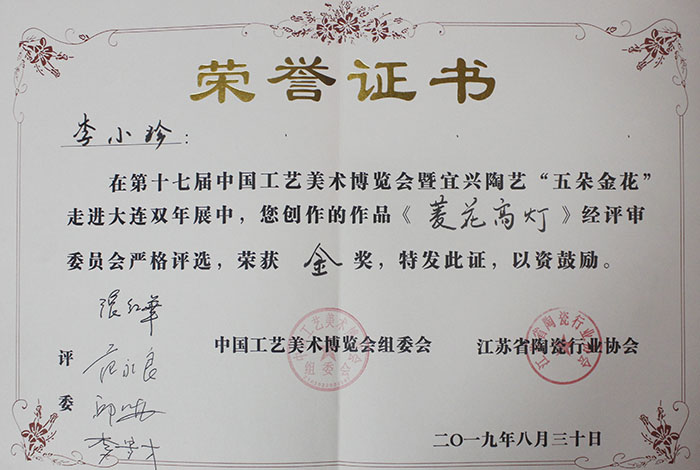 荣誉证书
李小珍：
在第十七届中国工艺美术博览会暨宜兴陶艺“五朵金花”
走进大连双年展中，您创作的作品《菱花高灯》经评审
委员会严格评选，荣获 金 奖，特发此证，以资鼓励。
评委
张红华
范永良
中国工艺美术博览会组委会
江苏省陶瓷行业协会
组委会
二〇一九年八月三十日